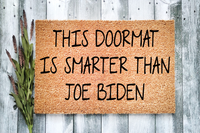 THIS DOORMAT
IS SMARTER THAN
JOE BIDEN